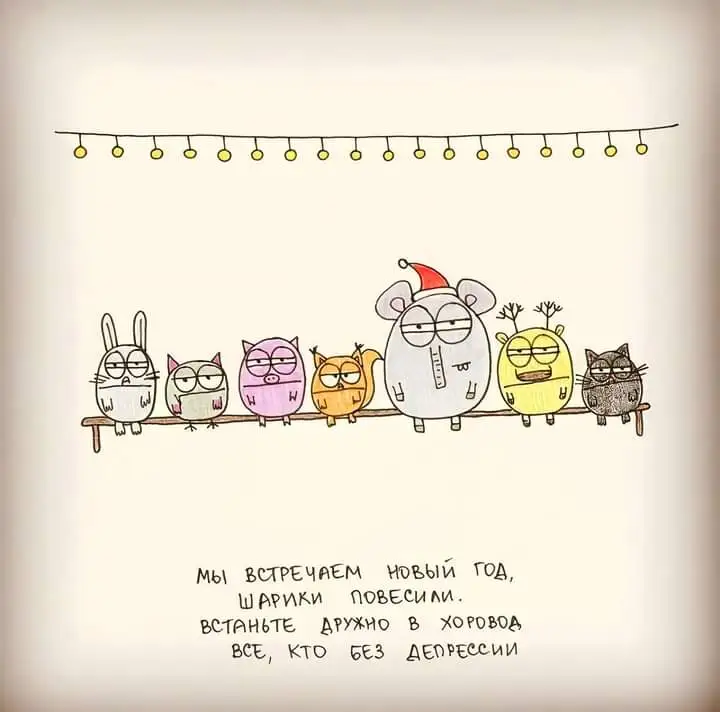 МЫ ВСТРЕЧАЕМ НОВЫЙ ГОД,
ШАРИКИ ПОВЕСИЛИ.
ВСТАНЬТЕ ДРУЖНО В ХОРОВОД
ВСЕ, КТО БЕЗ ДЕПРЕССИИ